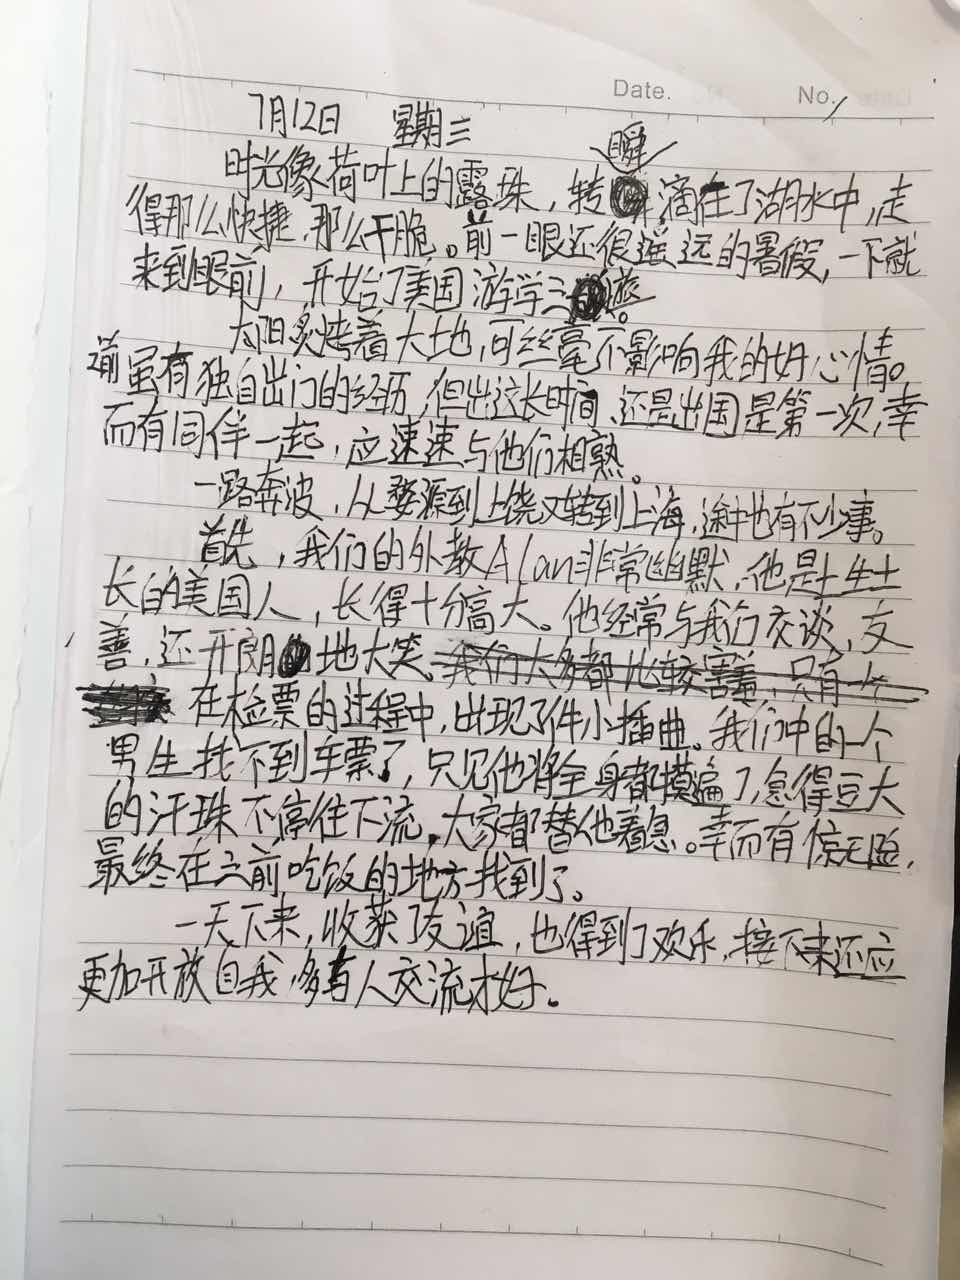 Date. No.
7月12日 星期三
时光像荷叶上的露珠，转瞬滴在了湖水中，走
得那么快捷，那么干脆。前一眼还很遥远的暑假，一下就
来到眼前，开始了美国游学之旅。
太阳炙烤着大地，可丝毫不影响我的好心情。
前虽有独自出门的经历，但出这长时间，还是出国是第一次，幸
而有同伴一起，应速速与他们相熟。
一路奔波，从婺源到上饶又转到上海，途中也有不少事。
首先，我们的外教Alan非常幽默，他是土生土
长的美国人，长得十分高大。他经常与我们交谈，友
善，还开朗地大笑。我们大多都比较害羞，只有一个
在检票的过程中，出现了件小插曲。我们中的一个
男生找不到车票了，只见他将全身都摸遍了，急得豆大
的汗珠不停往下流，大家都替他着急。幸而有惊无险，
最终在之前吃饭的地方找到了。
一天下来，收获了友谊，也得到了欢乐，接下来还应
更加开放自我，多与人交流才好。